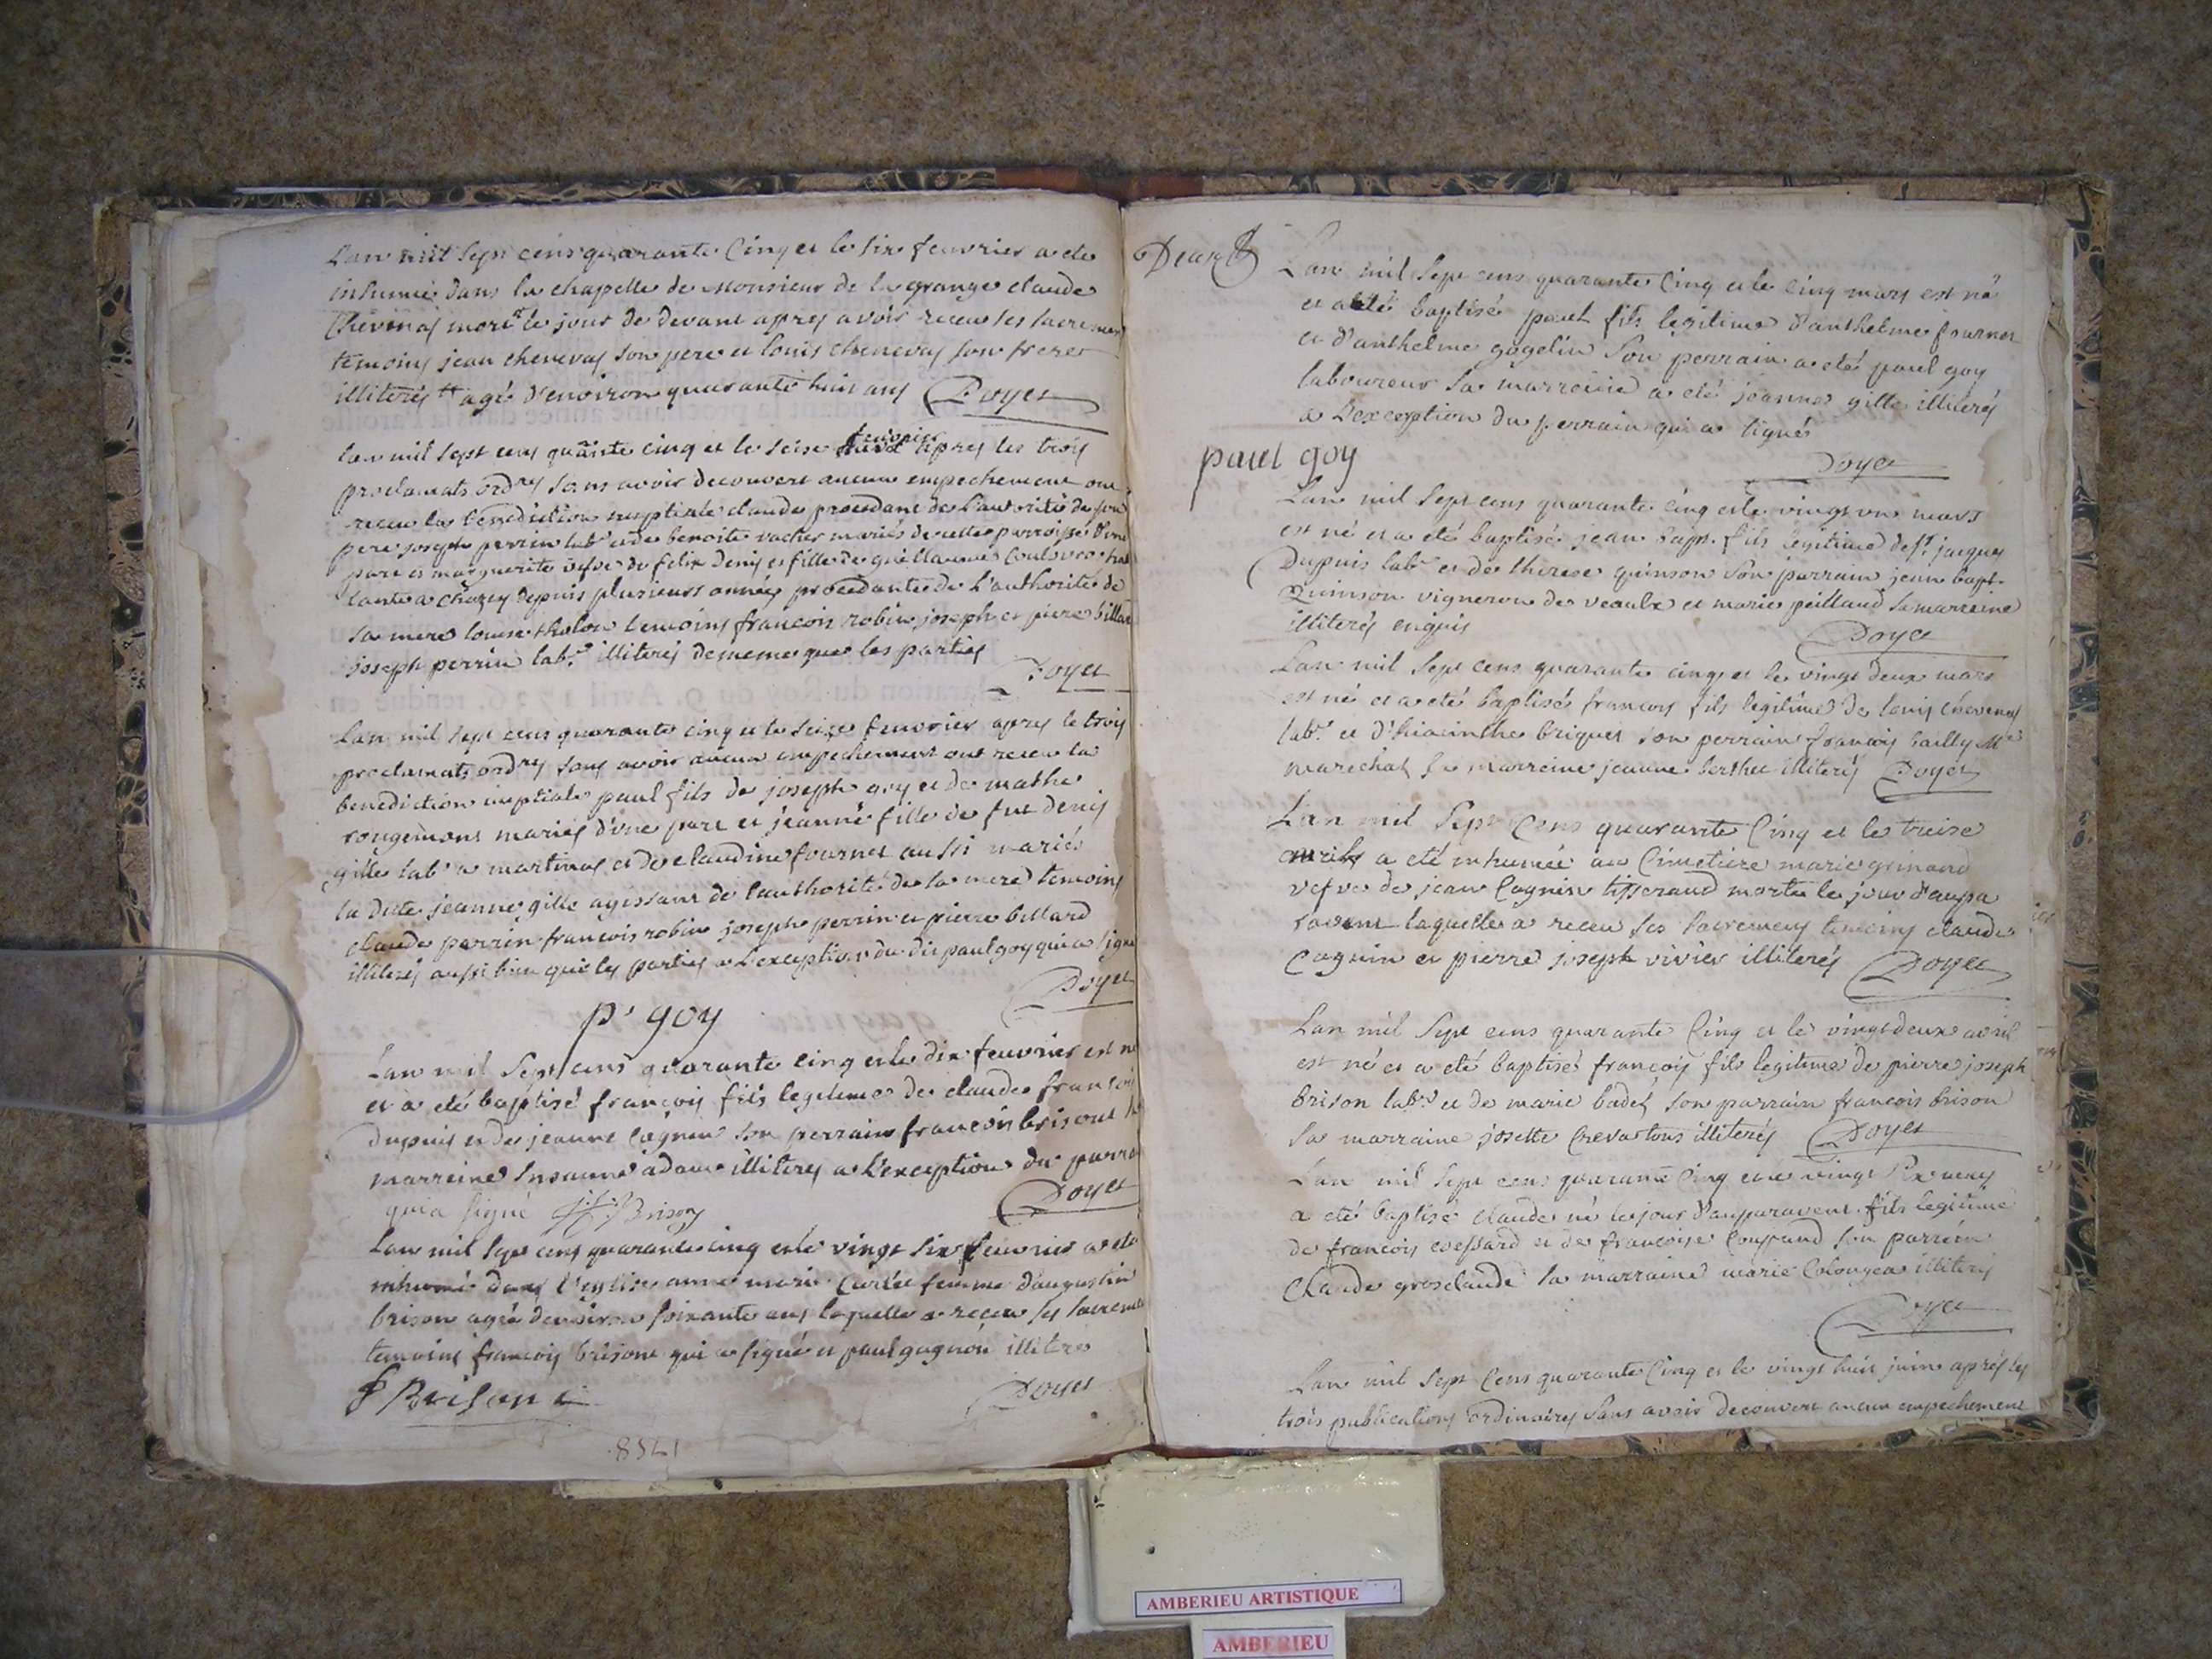 Lan mil sept cens quarante cinq et le six feuvrier a eté
inhumé dans la chapelle de monsieur de la grange claude
Chevenas mort le jour de devant apres avoir receu ses sacremens
temoins jean chenevas son pere et louis chenevas son frere
illiterés agé d'environ quarante huit ans Doyet
lan mil sept cens quarante cinq et le seise feuvrier apres les trois
proclamats ordres sans avoir decouvert aucun empechement ont
receu la benediction nuptiale claude procedant de l'autorité de son
pere joseph perrin labr et de benoite vacher mariés de cette parroisse d'une
part et marguerite vefve de felix denis et fille de guillaume
a chazey depuis plusieurs années procedante de l'authorité de
sa mere louise tholon temoins francois robin joseph et pierre billard
joseph perrin labr illiterés de meme que les parties
Doyet
Lan mil sept cens quarante cinq et le seize feuvrier apres le trois
proclamats ordres sans avoir aucun empechement ont receu la
benediction nuptiale paul fils de joseph goy et de mathe
rougemont mariés d'une part et jeanne fille de fut denis
gille labr a martinas et de claudine fournet aussi mariés
la dite jeanne gille agissant de l'authorité de sa mere temoins
claude perrin francois robin joseph perrin et pierre billard
illiterés aussi bien que les parties a l'exception du dit paul goy qui a signé
Doyet
p' goy
Lan mil sept cens quarante cinq et le dix feuvrier est né
et a eté baptisé françois fils legitime de claude françois
dupuis et de jeanne cognin son perrain francois brison
marreine susanne adam illiterés a l'exception du parrain
qui a signé Brison Doyet
Lan mil sept cens quarante cinq et le vingt six feuvrier a eté
inhumé dans l'eglise anne marie femme d'augustin
brison agée d'environ soixante ans laquelle a receu ses sacremens
temoins françois brison qui a signé et paul gagnon illiteres
f Brison Doyet
1758.
Lan mil sept cens quarante cinq et le cinq mars est né
et a eté baptisé paul fils legitime d'anthelme fournet
et d'anthelme gogelin son perrain a eté paul goy
laboureur sa marreine a eté jeanne gille illiterés
a l'exception du perrain qui a signé
paul goy Doyet
Lan mil sept cens quarante cinq et le vingt un mars
est né et a eté baptisé jean bapt. fils legitime de jacques
Dupuis labr et de therese quinson son parrain jean bapt.
Quinson vigneron de veaulx et marie peilland sa marreine
illiterés enquis Doyet
Lan mil sept cens quarante cinq et le vingt deux mars
est né et a eté baptisé françois fils legitime de louis chevenas
labr et d'hiacinthe briquet son perrain françois bailly Me
marechal sa marreine jeanne berthet illiterés Doyet
Lan mil sept cens quarante cinq et le treise
avril a eté inhumée au cimetiere marie grinand
vefve de jean cognin tisserand morte le jour d'aupa
ravent laquelle a receu ses sacremens temoins claude
cognin et pierre joseph vivier illiterés Doyet
Lan mil sept cens quarante cinq et le vingt deux avril
est né et a eté baptisé françois fils legitime de pierre joseph
brison labr et de marie badet son parrain francois brison
sa marraine josette illiterés Doyet
Lan mil sept cens quarante cinq et le vingt six
a eté baptisé claude né le jour d'auparavent fils legitime
de francois et de francoise Coupand son parrein
Claude grosclaude sa marraine marie illiterés
Doyet
Lan mil sept cens quarante cinq et le vingt huit juin aprés les
trois publications ordinaires sans avoir decouvert aucun empechement
AMBERIEU ARTISTIQUE
AMBERIEU